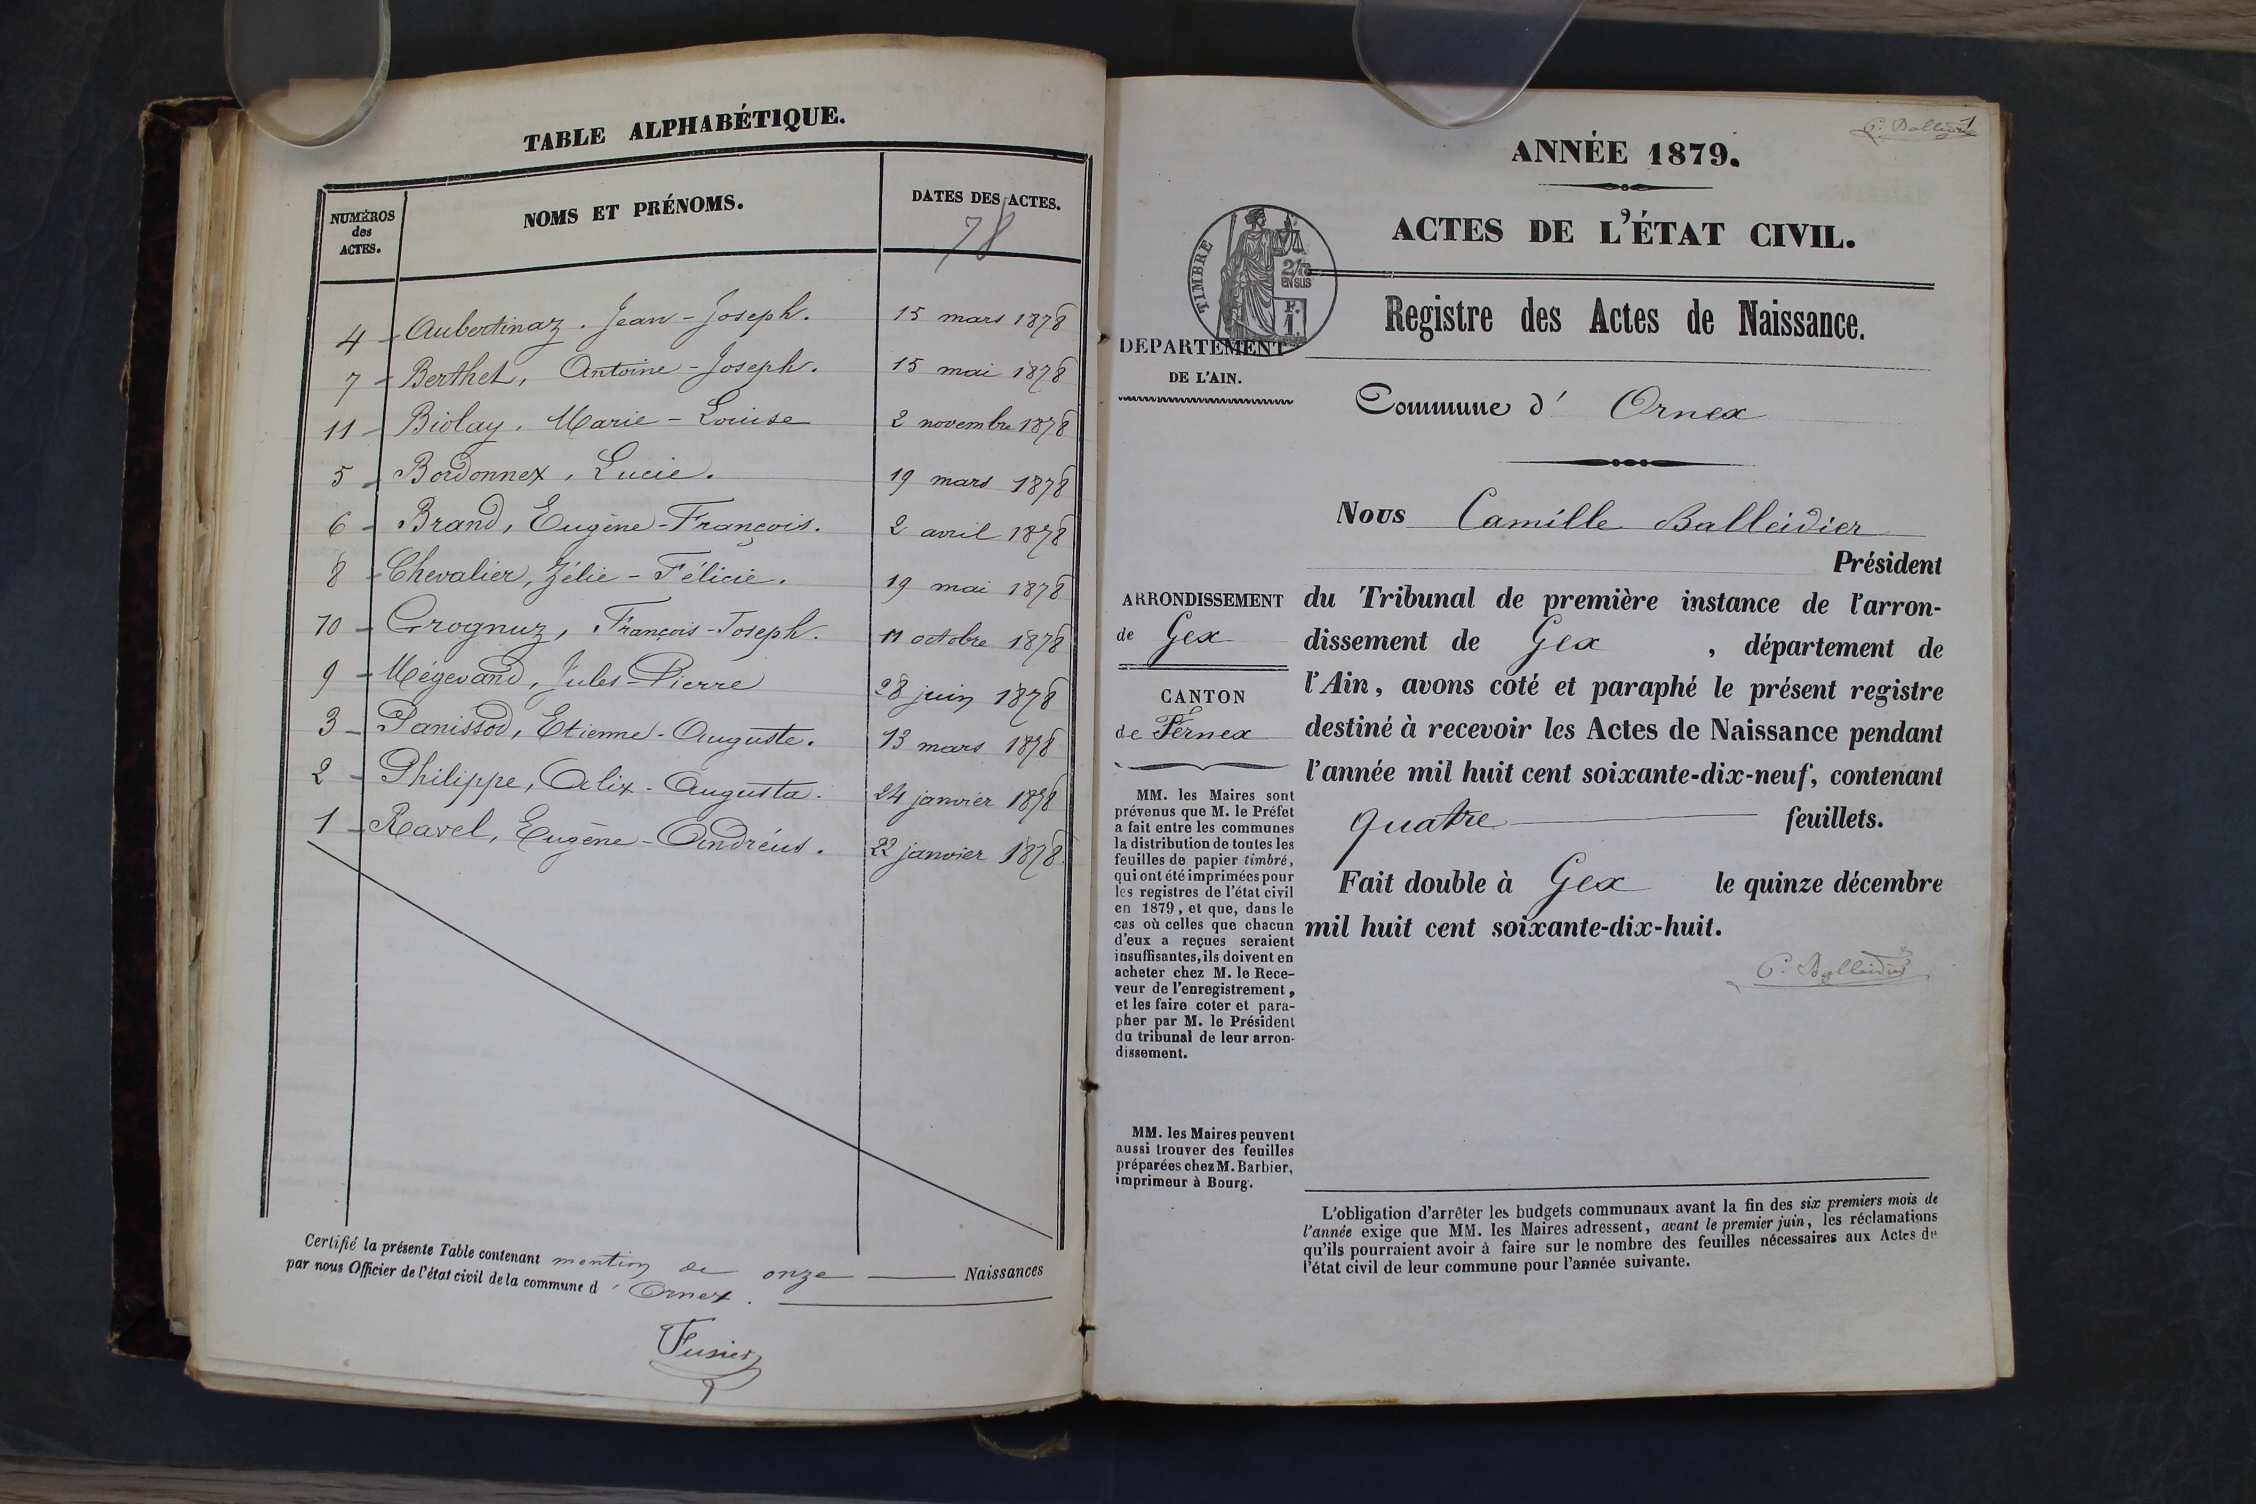 TABLE ALPHABÉTIQUE.
NUMÉROS des ACTES.
NOMS ET PRÉNOMS.
DATES DES ACTES.
78
4 - Aubertinaz. Jean-Joseph. 15 mars 1878
7 - Berthet, Antoine-Joseph. 15 mai 1878
11 - Biolay, Marie-Louise 2 novembre 1878
5 - Bordonnex, Lucie. 19 mars 1878
6 - Brand, Eugène-François. 2 avril 1878
8 - Chevalier, Zélie-Félicie. 19 mai 1878
10 - Grognuz, François-Joseph. 11 octobre 1878
9 - Mégevand, Jules-Pierre 28 juin 1878
3 - Panissod, Etienne-Auguste. 13 mars 1878
2 - Philippe, Alix-Augusta. 24 janvier 1878
1 - Ravel, Eugène-Andréus. 22 janvier 1878.
Certifié la présente Table contenant mention de onze Naissances
par nous Officier de l'état civil de la commune d'Ornex.
Fusier
1
C. Balleidier
ANNÉE 1879.
ACTES DE L'ÉTAT CIVIL.
TIMBRE
2/10
EN SUS
F.
1.
Registre des Actes de Naissance.
DEPARTEMENT
DE L'AIN.
Commune d' Ornex
Nous Camille Balleidier
Président
du Tribunal de première instance de l'arron-
dissement de Gex, département de
l'Ain, avons coté et paraphé le présent registre
destiné à recevoir les Actes de Naissance pendant
l'année mil huit cent soixante-dix-neuf, contenant
quatre feuillets.
Fait double à Gex le quinze décembre
mil huit cent soixante-dix-huit.
C. Balleidier
ARRONDISSEMENT
de Gex
CANTON
de Fernex
MM. les Maires sont
prévenus que M. le Préfet
a fait entre les communes
la distribution de toutes les
feuilles de papier timbré,
qui ont été imprimées pour
les registres de l'état civil
en 1879, et que, dans le
cas où celles que chacun
d'eux a reçues seraient
insuffisantes, ils doivent en
acheter chez M. le Rece-
veur de l'enregistrement,
et les faire coter et para-
pher par M. le Président
du tribunal de leur arron-
dissement.
MM. les Maires peuvent
aussi trouver des feuilles
préparées chez M. Barbier,
imprimeur à Bourg.
L'obligation d'arrêter les budgets communaux avant la fin des six premiers mois de
l'année exige que MM. les Maires adressent, avant le premier juin, les réclamations
qu'ils pourraient avoir à faire sur le nombre des feuilles nécessaires aux Actes de
l'état civil de leur commune pour l'année suivante.